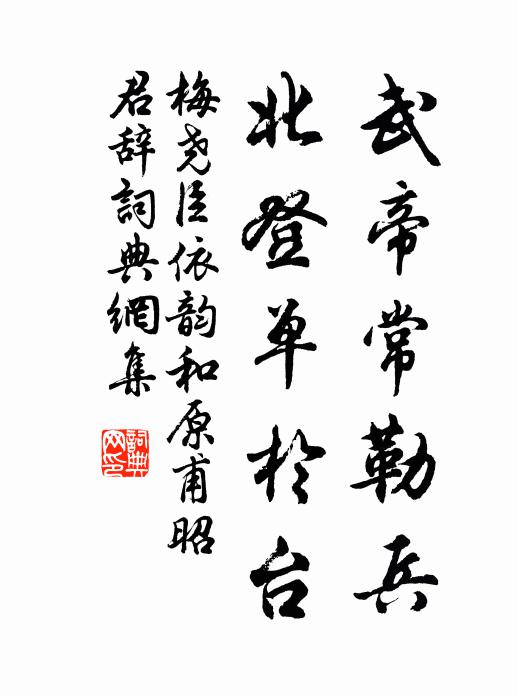 武帝常勒兵
北登单於台
梅尧臣依韵和原甫昭
君辞詞典網集
詞典
网印